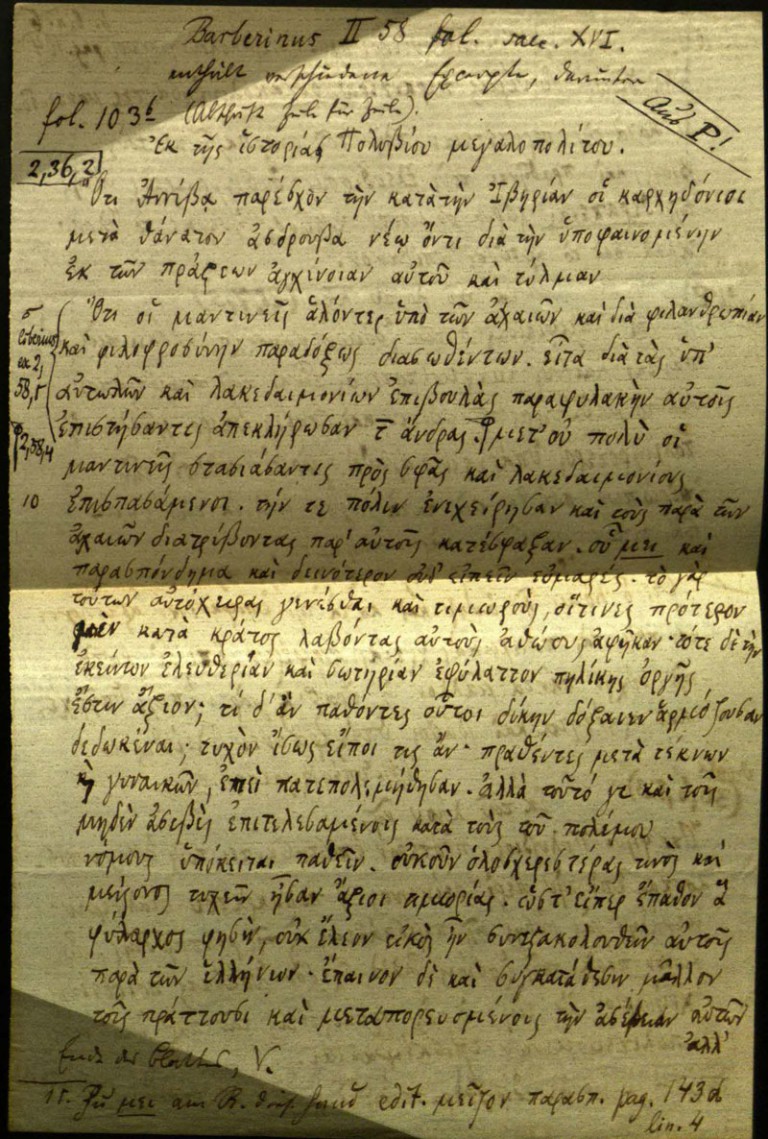 Barberinus II 58 fol. saec. XVI.
enthält verschiedene Excerpte, darunter
fol. 103b (Abschrift Zeile für Zeile).
Aus P!
Ἐκ τῆς ἱστορίας Πολυβίου μεγαλοπολίτου.
2,36,2
Ὅτι Ἀννίβᾳ παρέσχον τὴν κατὰ τὴν Ἰβηρίαν οἱ καρχηδόνιοι
μετὰ θάνατον ἀσδρούβα νέῳ ὄντι διὰ τὴν ὑποφαινομένην
ἐκ τῶν πράξεων ἀγχίνοιαν αὐτοῦ καὶ τόλμαν
Ὅτι οἱ μαντινεῖς ἁλόντες ὑπὸ τῶν ἀχαιῶν καὶ διὰ φιλανθρωπίαν
5
ex 2,
58,1
καὶ φιλοφροσύνην παραδόξως διασωθέντων. εἶτα διὰ τὰς ὑπ'
αὐτωλῶν καὶ λακεδαιμονίων ἐπιβουλὰς παραφυλακὴν αὐτοῖς
ἐπιστήσαντες ἀπεκλήρωσαν τ ἄνδρας. μετ' οὐ πολὺ οἱ
2,58,4
μαντινεῖς στασιάσαντες πρὸς σφᾶς καὶ λακεδαιμονίους
10 ἐπισπασάμενοι. τήν τε πόλιν ἐνεχείρησαν καὶ τοὺς παρὰ τῶν
ἀχαιῶν διατρίβοντας παρ' αὐτοῖς κατέσφαξαν. οὗ μει καὶ
παρασπόνδημα καὶ δεινότερον οὐδ' εἰπεῖν εὐμαρές. τὸ γὰρ
τούτων αὐτόχειρας γενέσθαι καὶ τιμωροὺς, οἵτινες πρότερον
μὲν κατὰ κράτος λαβόντας αὐτοὺς ἀθώους ἀφῆκαν. τότε δὲ τὴν
ἐκείνων ἐλευθερίαν καὶ σωτηρίαν ἐφύλαττον πηλίκης ὀργῆς
ἔστιν ἄξιον; τί δ' ἂν παθοντες οὗτοι δίκην δόξαιεν ἁρμόζουσαν
δεδωκέναι; τυχὸν ἴσως εἴποι τις ἄν. πραθέντες μετὰ τέκνων
καὶ γυναικῶν, ἐπεὶ κατεπολεμήθησαν. ἀλλὰ τοῦτό γε καὶ τοῖς
μηδὲν ἀσεβὲς ἐπιτελεσαμένοις κατὰ τοὺς τοῦ πολέμου
νόμους ὑπόκειται παθεῖν. οὐκοῦν ὁλοσχερεστέρας τινὸς καὶ
μείζονος τυχεῖν ἦσαν ἄξιοι τιμωρίας. ὥστ' εἴπερ ἔπαθον ἃ
φύλαρχος φησὶν, οὐκ ἔλεον εἰκὸς ἦν συνεξακολουθεῖν αὐτοῖς
παρὰ τῶν ἑλλήνων. ἔπαινον δὲ καὶ συγκατάθεσιν μᾶλλον
τοῖς πράττουσι καὶ μεταπορευομένοις τὴν ἀσέβειαν αὐτῶν
ἀλλ'
Ende des Blattes, V.
Zu μει am R. edit. μεῖζον παρασπ. pag. 143
lin. 4